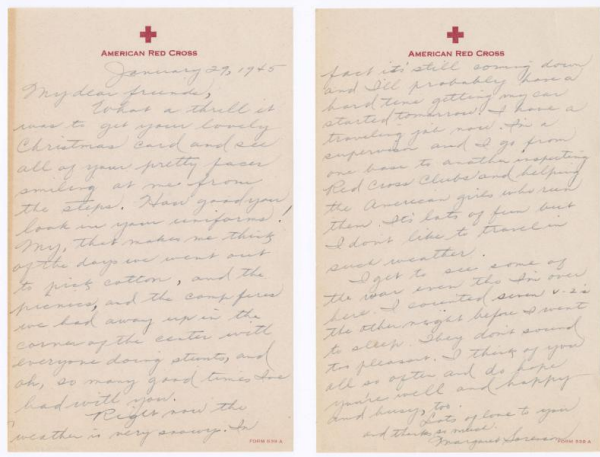 AMERICAN RED CROSS
January 29, 1945
My dear friends,
What a thrill it
was to get your lovely
Christmas card and see
all of your pretty faces
smiling at me from
the steps. How good you
look in your uniforms!
My, that makes me think
of the days we went out
to pick cotton, and the
picnics, and the camp fires
we had away up in the
corner of the center with
everyone doing stunts, and
oh, so many good times I've
had with you.
Right now the
weather is very snowy. In
FORM 539 A
AMERICAN RED CROSS
fact it's still coming down
and I'll probably have a
hard time getting my car
started tomorrow. I have a
traveling job now. I'm a
supervisor and I go from
one base to another inspecting
Red Cross Clubs and helping
the American girls who run
them. It's lots of fun but
I don't like to travel in
such weather.
I get to see some of
the war even tho I'm over
here. I counted seven v-2s
the other night before I went
to sleep. They don't sound
too pleasant. I think of you
all so often and do hope
you're well and happy
and busy, too.
Lots of love to you
and thanks so much.
Margaret Sorenson
FORM 539 A